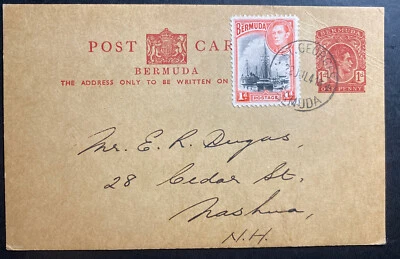 POST CAR
BERMUDA
THE ADDRESS ONLY TO BE WRITTEN ON
BERMUDA
1d
POSTAGE
1d
ST. GEORGE
JUL 4
MUDA
BERMUDA
1d
1d
ONE PENNY
Mr. E. R. Dugas,
28 Cedar St.
Nashua,
N.H.